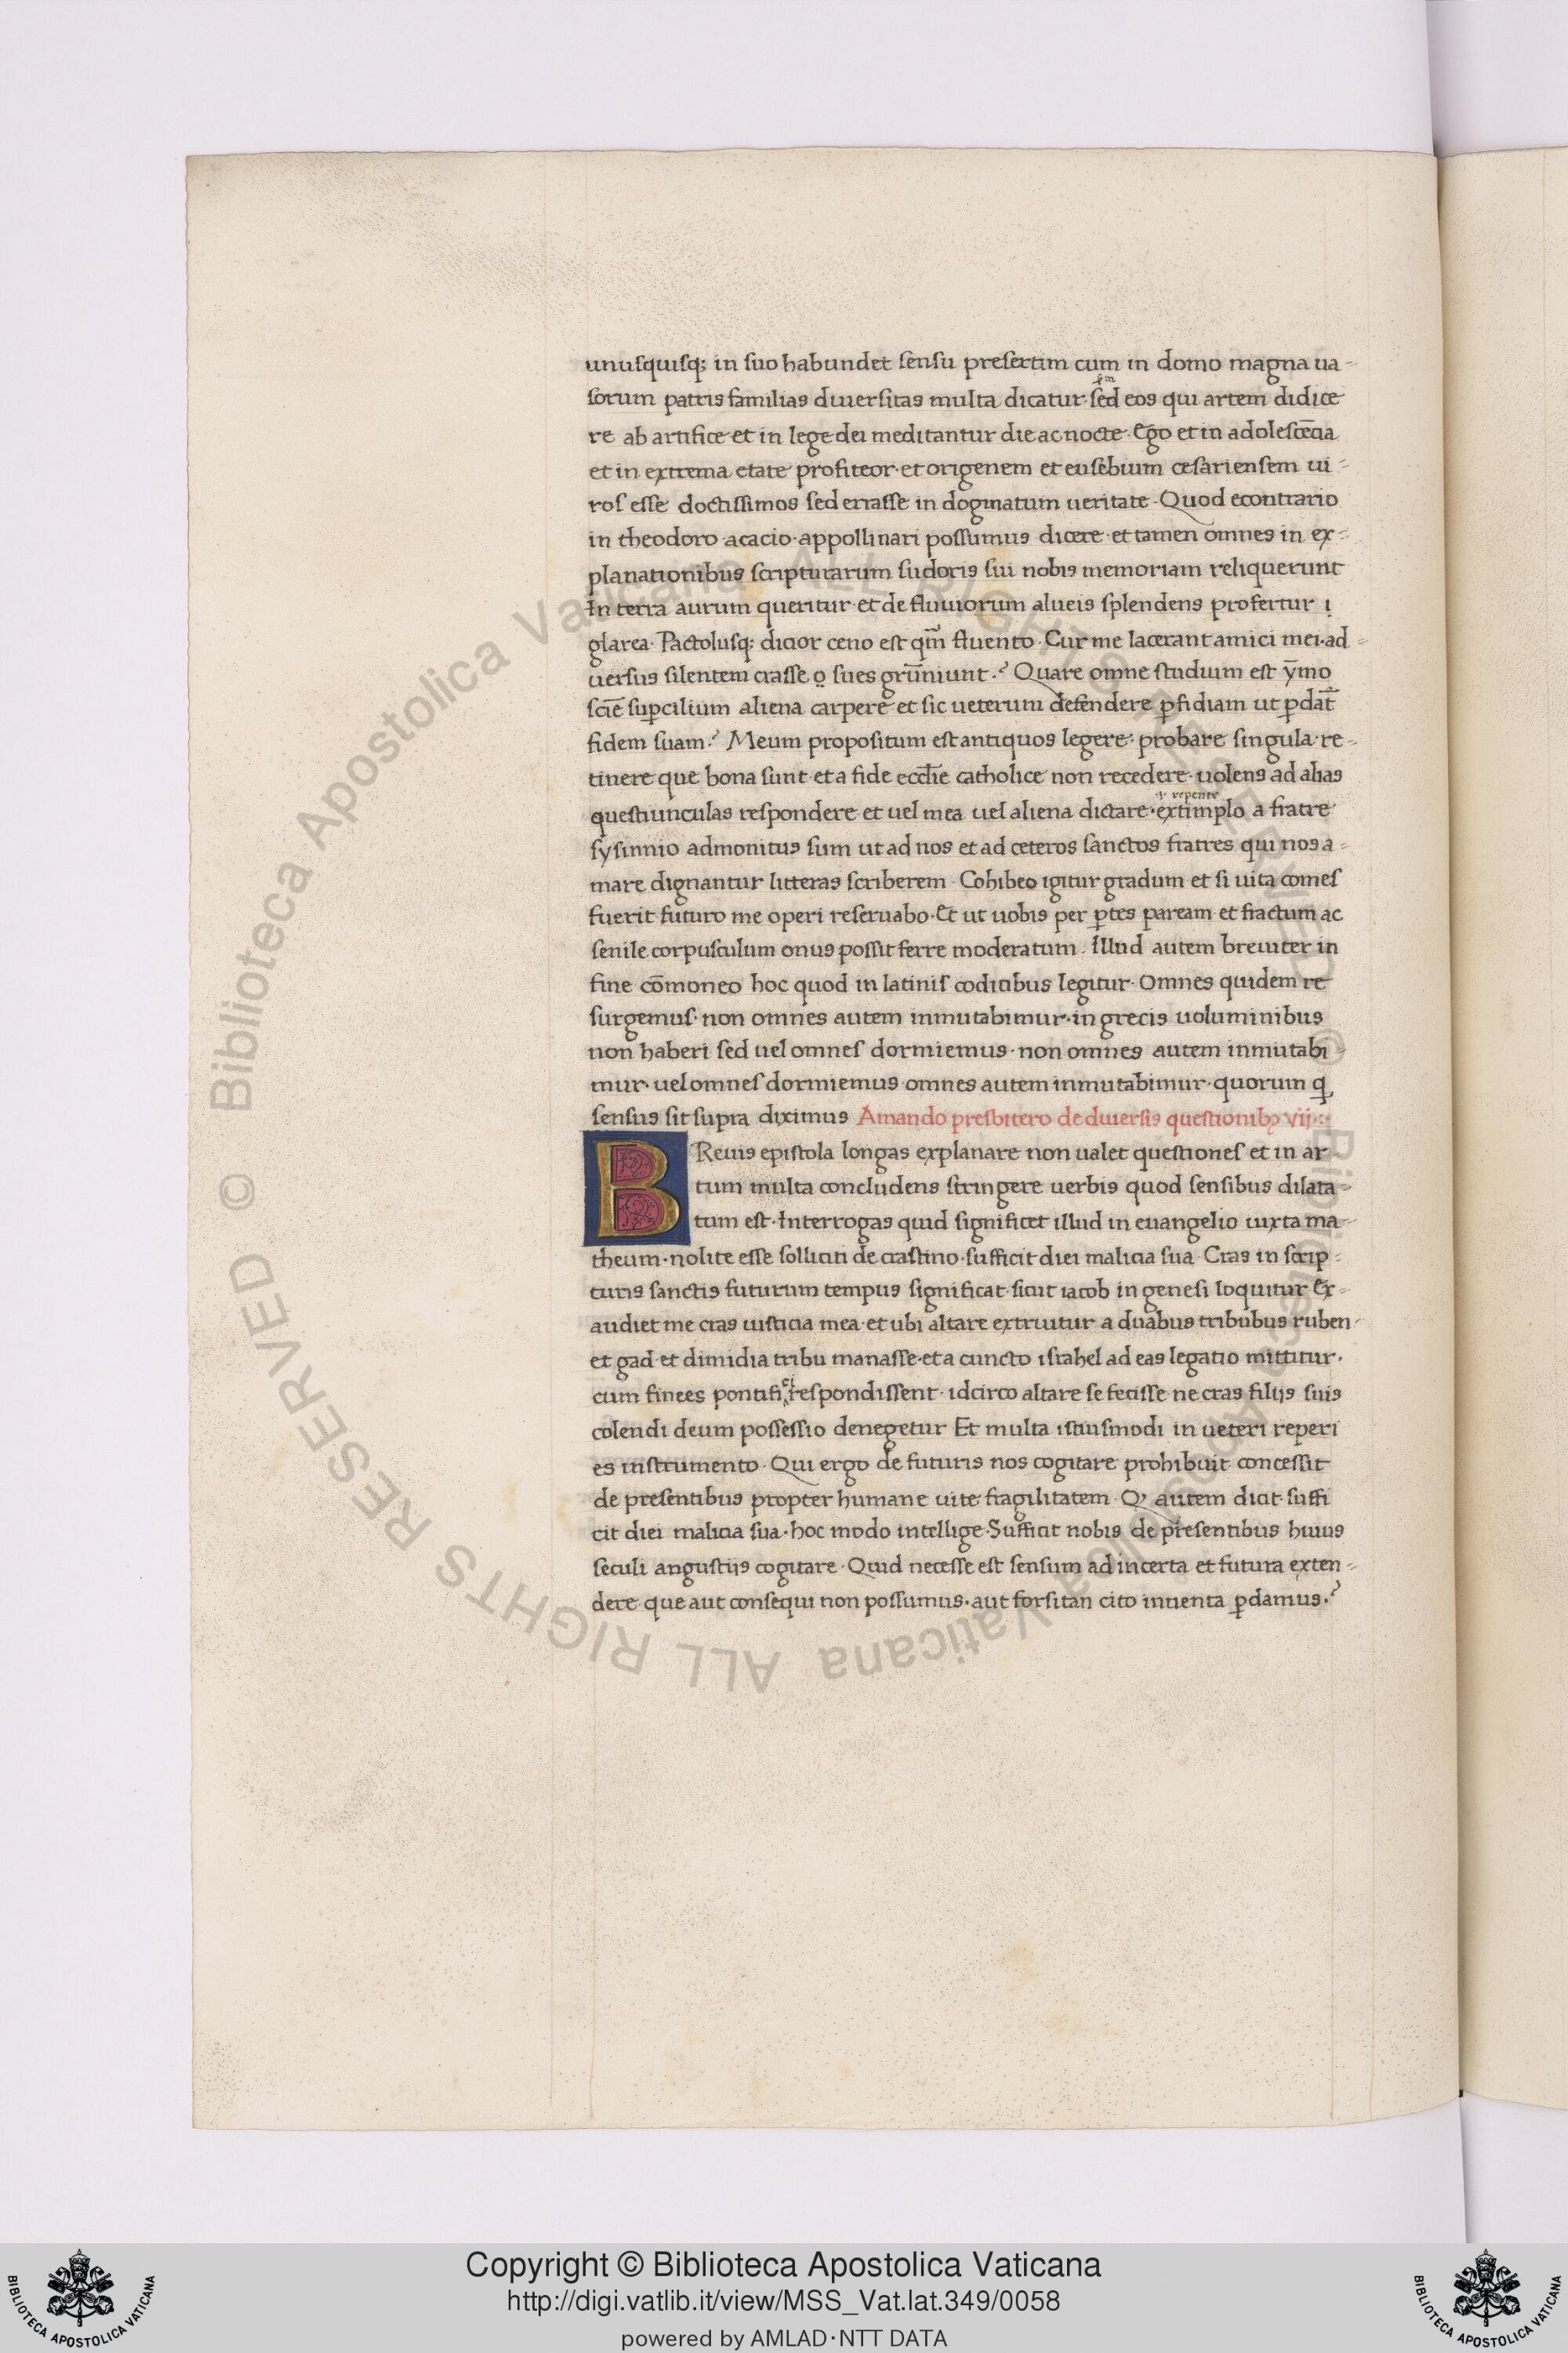 unusquisq; in suo habundet sensu presertim cum in domo magna ua-
sorum patris familias diuersitas multa dicatur· sed eos qui artem didice
re ab artifice et in lege dei meditantur die ac nocte· Ego et in adolescēcia
et in extrema etate profiteor· et origenem et eusebium cesariensem ui-
ros esse doctissimos sed errasse in dogmatum ueritate· Quod econtrario
in theodoro· acacio· appollinari possumus dicere· et tamen omnes in ex-
planationibus scripturarum sudoris sui nobis memoriam reliquerunt
In terra aurum queritur· et de fluuiorum alueis splendens profertur i
glarea· Pactolusq; dicior ceno est qm̄ fluento· Cur me lacerant amici mei· ad-
uersus silentem crasse o sues grūniunt·? Quare omne studium est ȳmo
scīe suꝑcilium aliena carpere et sic ueterum defendere ꝑfidiam ut ꝑdāt
fidem suam·? Meum propositum est antiquos legere· probare singula· re-
tinere que bona sunt· et a fide eccl̄ie catholice non recedere· uolens ad alias
·i· repente
questiunculas respondere et uel mea uel aliena dictare· extimplo a fratre
sysinnio admonitus sum ut ad nos et ad ceteros sanctos fratres qui nos a-
mare dignantur litteras scriberem· Cohibeo igitur gradum et si uita comes
fuerit futuro me operi reseruabo· Et ut uobis per ꝑtes paream et fractum ac
senile corpusculum onus possit ferre moderatum· Illud autem breuiter in
fine cōmoneo hoc quod in latinis codicibus legitur· Omnes quidem re
surgemus· non omnes autem inmutabimur· in grecis uoluminibus
non haberi sed uel omnes dormiemus· non omnes autem inmutabi-
mur· uel omnes dormiemus· omnes autem inmutabimur· quorum q
sensus sit supra diximus Amando presbitero de diuersis questionibꝫ vij·:·
BReuis epistola longas explanare non ualet questiones et in ar
tum multa concludens stringere uerbis quod sensibus dilata-
tum est· Interrogas quid significet illud in euangelio iuxta ma-
theum· nolite esse solliciti de crastino· sufficit diei malicia sua· Cras in scrip-
turis sanctis futurum tempus significat· sicut iacob in genesi loquitur Ex-
audiet me cras iusticia mea· et ubi altare extruitur a duabus tribubus ruben
et gad· et dimidia tribu manasse· et a cuncto israhel ad eas legatio mittitur·
cum finees pontifi ci respondissent· idcirco altare se fecisse ne cras filijs suis
colendi deum possessio denegetur Et multa istiusmodi in ueteri reperi
es instrumento· Qui ergo de futuris nos cogitare prohibuit concessit
de presentibus propter humane uite fragilitatem· Q' autem dicit· suffi
cit diei malicia sua· hoc modo intellige· Sufficit nobis de presentibus huius
seculi angustijs cogitare· Quid necesse est sensum ad incerta et futura exten-
dere que aut consequi non possumus· aut forsitan cito inuenta ꝑdamus·?
© Biblioteca Apostolica Vaticana ALL RIGHTS RESERVED
© Biblioteca Apostolica Vaticana ALL RIGHTS RESERVED
Copyright © Biblioteca Apostolica Vaticana
http://digi.vatlib.it/view/MSS_Vat.lat.349/0058
powered by AMLAD·NTT DATA
BIBLIOTECA APOSTOLICA VATICANA
BIBLIOTECA APOSTOLICA VATICANA